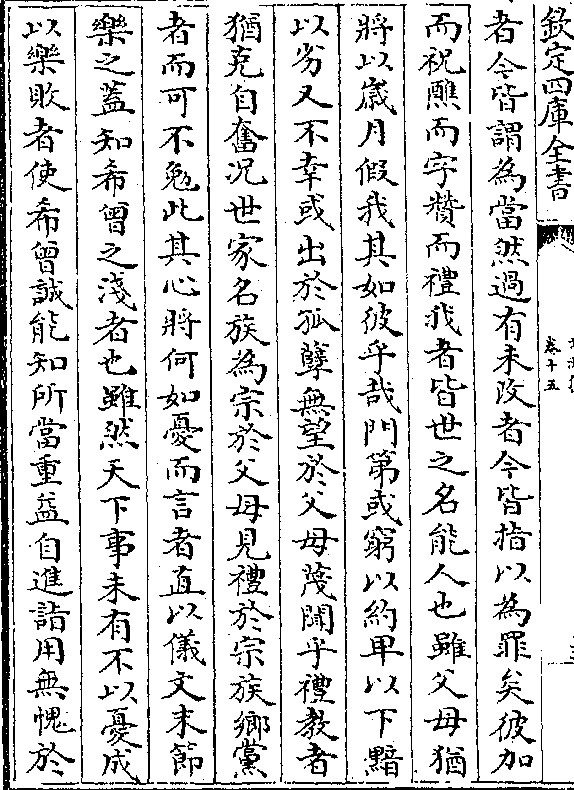 欽定四庫全書
卷十五
者今皆謂為當然過有未改者今皆指以為罪矣彼加
而祝醮而字贊而禮我者皆世之名能人也雖父母猶
將以歲月假我其如彼乎哉門第或窮以約卑以下黯
以劣又不幸或出於孤孽無望於父母蔑聞乎禮教者
猶克自奮况世家名族為宗於父母見禮於宗族鄉黨
者而可不勉此其心將何如憂而言者直以儀文末節
樂之蓋知希曾之淺者也雖然天下事未有不以憂成
以樂敗者使希曾誠能知所當重益自進詣用無愧於